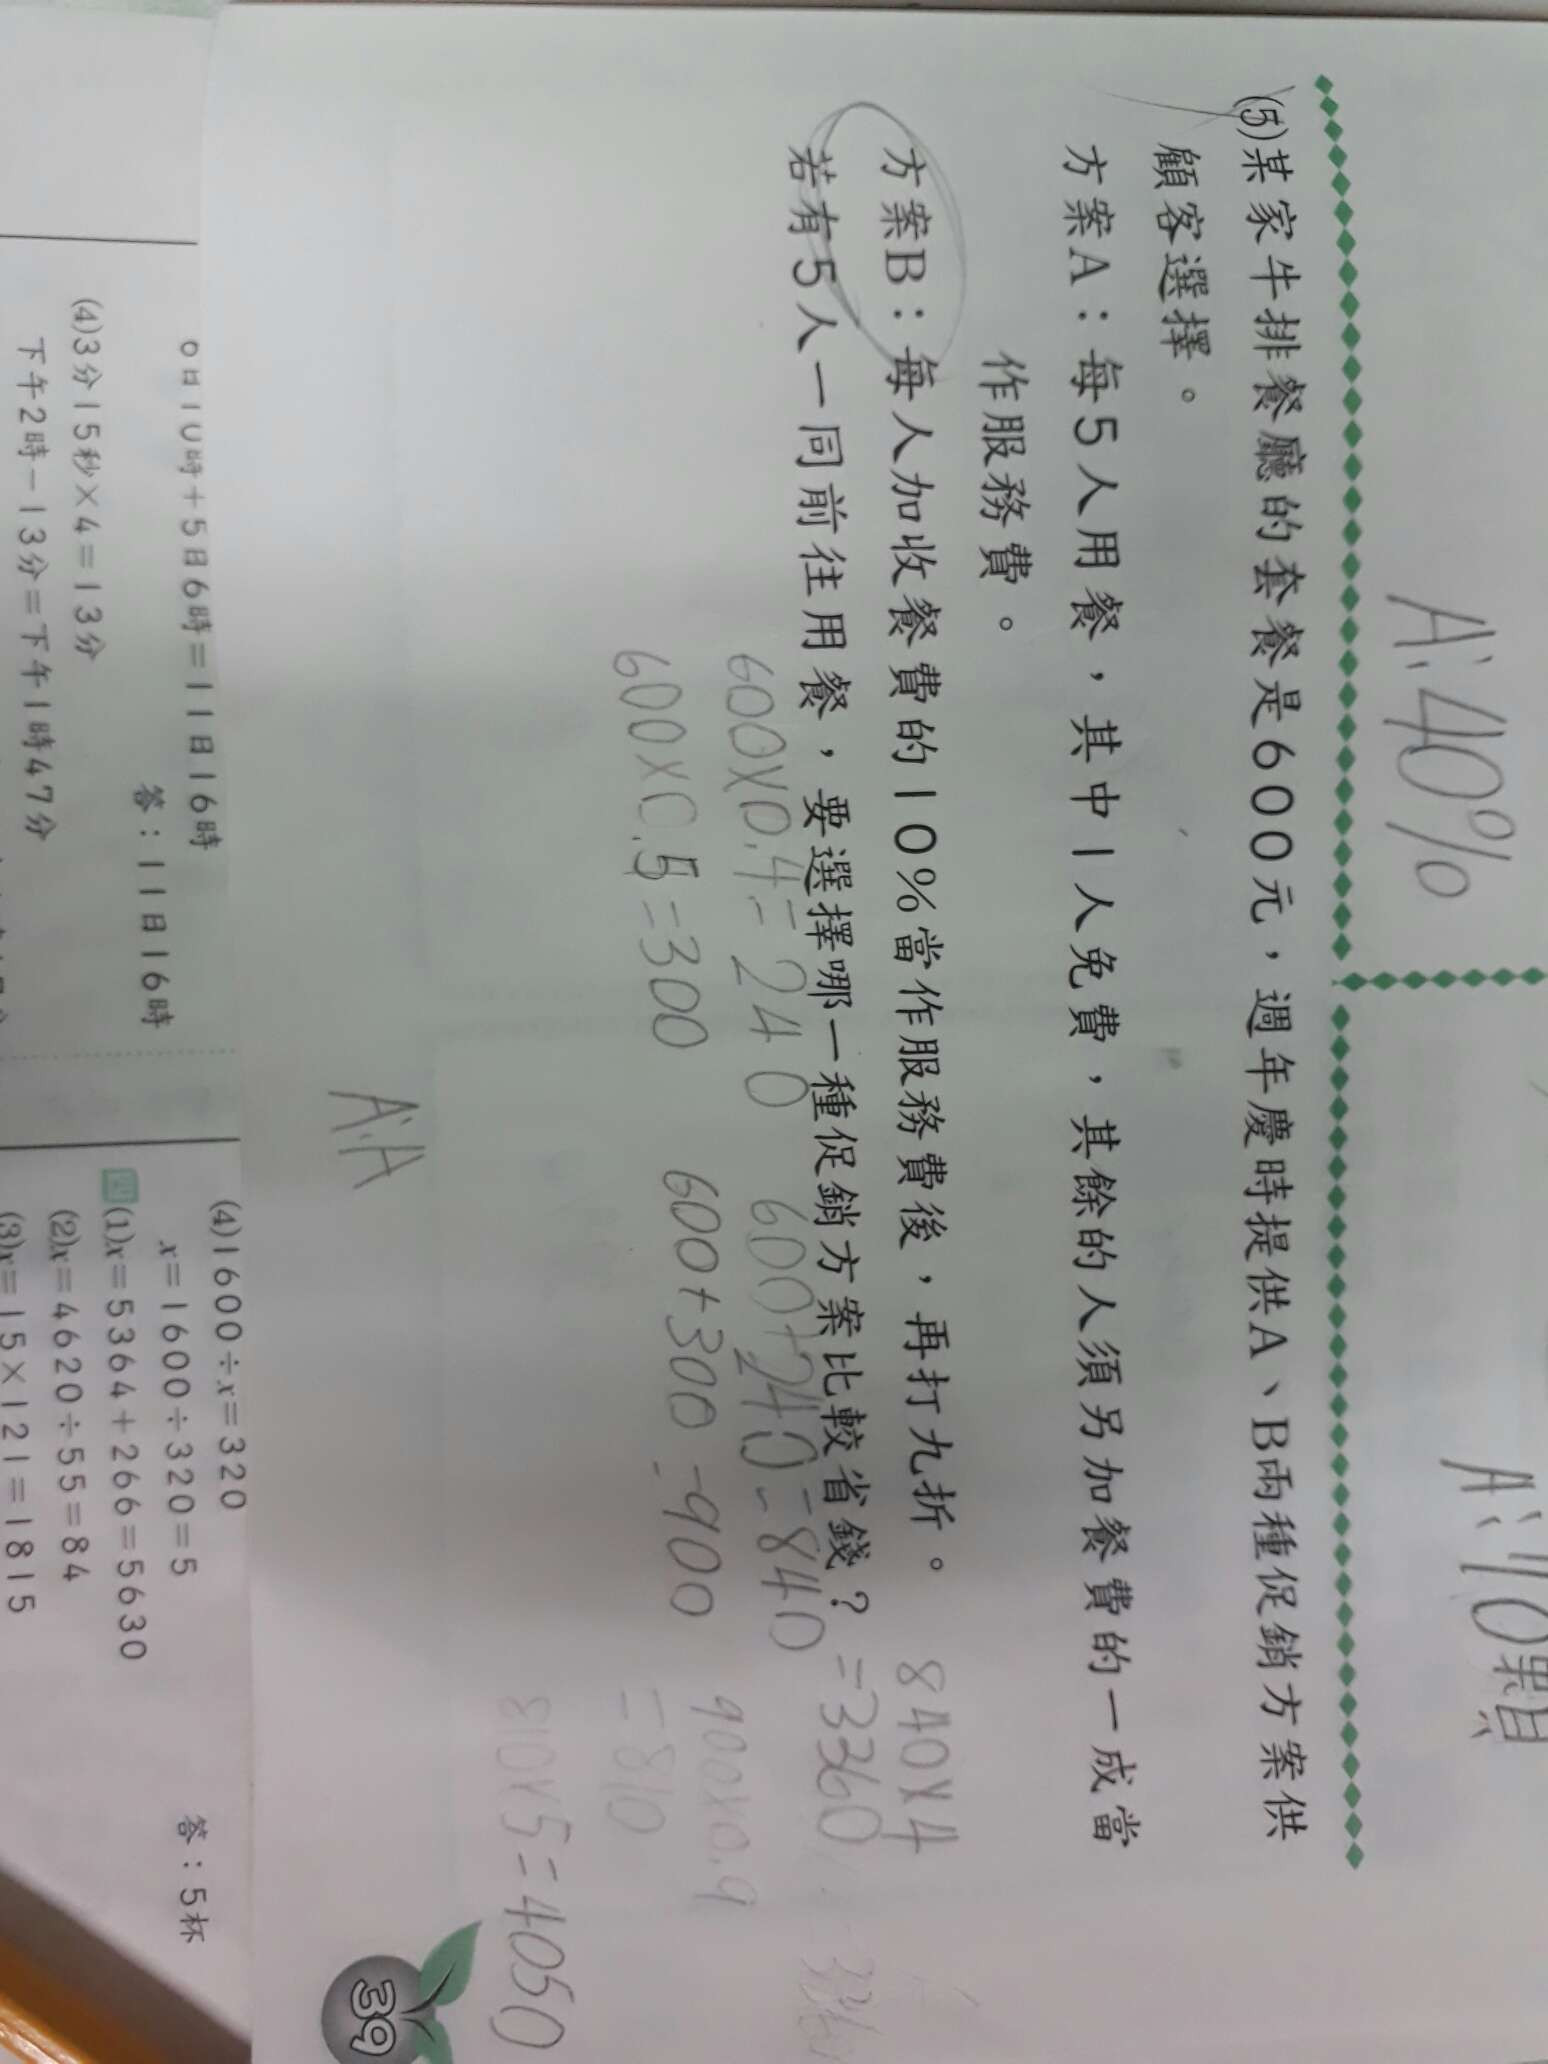 A:40%
A:10顆
(5)某家牛排餐廳的套餐是600元，週年慶時提供A、B兩種促銷方案供
顧客選擇。
方案A：每5人用餐，其中1人免費，其餘的人須另加餐費的一成當
作服務費。
方案B：每人加收餐費的10%當作服務費後，再打九折。
若有5人一同前往用餐，要選擇哪一種促銷方案比較省錢？
840×4
=3360
600×0.4=240 600+240=840
600×0.5=300 600+300=900
900×0.9
=810
810×5=4050
A:A
39
0日10時+5日6時=11日16時
答：11日16時
(4)3分15秒×4=13分
下午2時-13分=下午1時47分
(4)1600÷x=320
x=1600÷320=5
答：5杯
四(1)x=5364+266=5630
(2)x=4620÷55=84
(3)x=15×121=1815